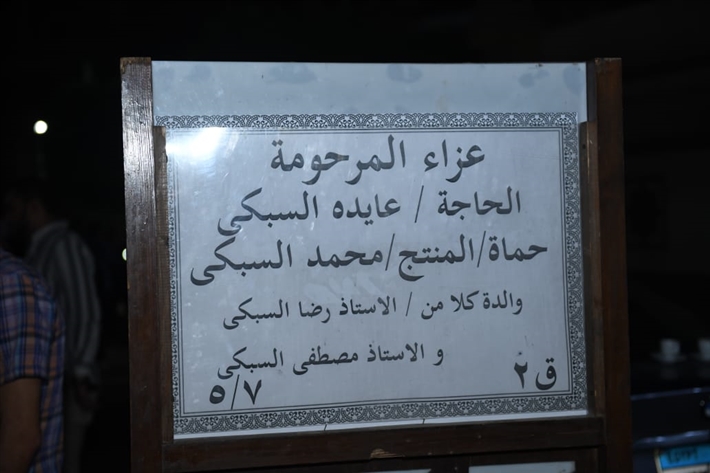 عزاء المرحومة
الحاجة / عايده السبكى
حماة/المنتج/محمد السبكى
والدة كلا من / الاستاذ رضا السبكى
و الاستاذ مصطفى السبكى
ق ٢
٥/٧